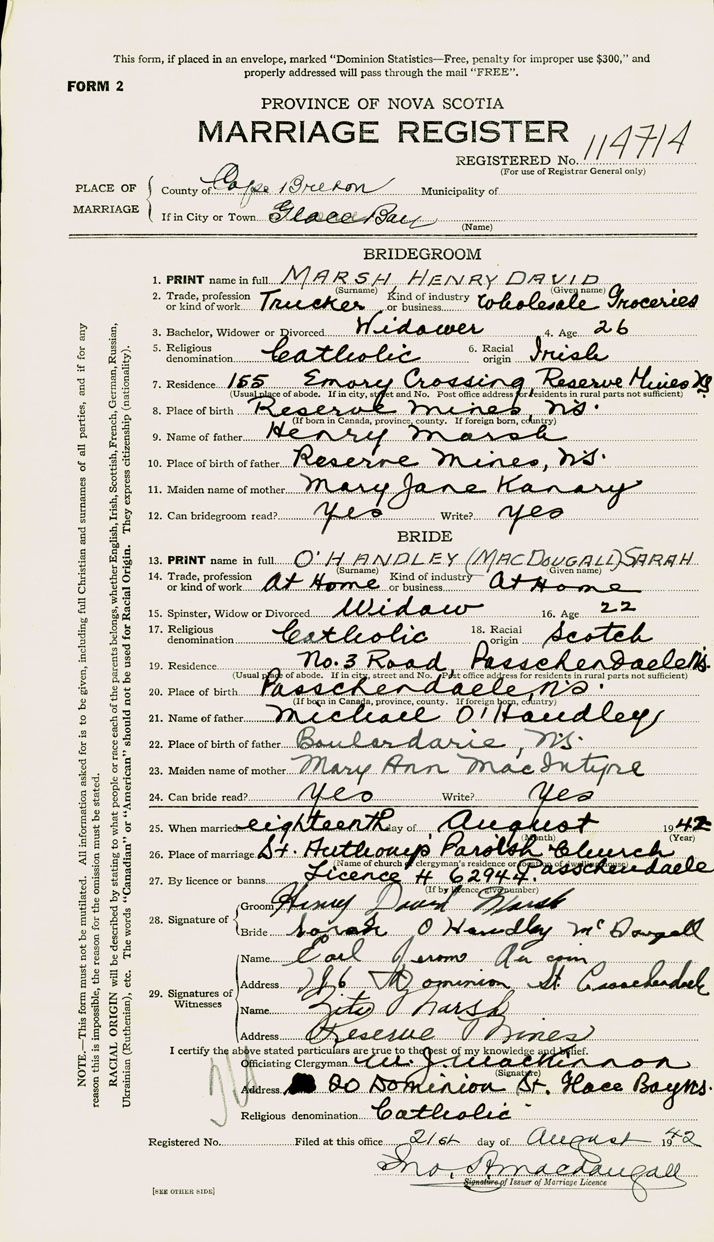 This form, if placed in an envelope, marked "Dominion Statistics—Free, penalty for improper use $300," and
properly addressed will pass through the mail "FREE".
FORM 2
PROVINCE OF NOVA SCOTIA
MARRIAGE REGISTER
REGISTERED No. 114714
(For use of Registrar General only)
PLACE OF MARRIAGE
County of Cape Breton Municipality of
If in City or Town Glace Bay
(Name)
BRIDEGROOM
1. PRINT name in full MARSH HENRY DAVID
(Surname) (Given name)
2. Trade, profession or kind of work Trucker Kind of industry or business Wholesale Groceries
3. Bachelor, Widower or Divorced Widower 4. Age 26
5. Religious denomination Catholic 6. Racial origin Irish
7. Residence 155 Emory Crossing, Reserve Mines NS
(Usual place of abode. If in city, street and No. Post office address for residents in rural parts not sufficient)
8. Place of birth Reserve Mines, NS.
(If born in Canada, province, county. If foreign born, country)
9. Name of father Henry Marsh
10. Place of birth of father Reserve Mines, NS.
11. Maiden name of mother Mary Jane Kanary
12. Can bridegroom read? yes Write? yes
BRIDE
13. PRINT name in full O'HANDLEY (MACDOUGALL) SARAH
(Surname) (Given name)
14. Trade, profession or kind of work At Home Kind of industry or business At Home
15. Spinster, Widow or Divorced Widow 16. Age 22
17. Religious denomination Catholic 18. Racial origin Scotch
19. Residence No. 3 Road, Passchendaele NS.
(Usual place of abode. If in city, street and No. Post office address for residents in rural parts not sufficient)
20. Place of birth Passchendaele, NS.
(If born in Canada, province, county. If foreign born, country)
21. Name of father Michael O'Handley
22. Place of birth of father Boulardarie, NS.
23. Maiden name of mother Mary Ann MacIntyre
24. Can bride read? Yes Write? Yes
25. When married eighteenth day of August 1942
(Month) (Year)
26. Place of marriage St. Anthonys Parish Church
(Name of church or clergyman's residence or location of dwelling house)
Passchendaele
27. By licence or banns Licence # 62944
(If by licence, give number)
28. Signature of
Groom Henry David Marsh
Bride Sarah O Handley McDougall
29. Signatures of Witnesses
Name Earl Jerome Aucoin
Address Dominion St. Passchendaele
Name Zita Marsh
Address Reserve Mines
I certify the above stated particulars are true to the best of my knowledge and belief.
Officiating Clergyman W. J. MacKinnon
(Signature)
Address 20 Dominion St. Glace Bay NS.
Religious denomination Catholic
Registered No. Filed at this office 21st day of August 1942
Jno. A. MacDougall
Signature of Issuer of Marriage Licence
[SEE OTHER SIDE]
NOTE.—This form must not be mutilated. All information asked for is to be given, including full Christian and surnames of all parties, and if for any
reason this is impossible, the reason for the omission must be stated.
RACIAL ORIGIN will be described by stating to what people or race each of the parents belongs, whether English, Irish, Scottish, French, German, Russian,
Ukrainian (Ruthenian), etc. The words "Canadian" or "American" should not be used for Racial Origin. They express citizenship (nationality).